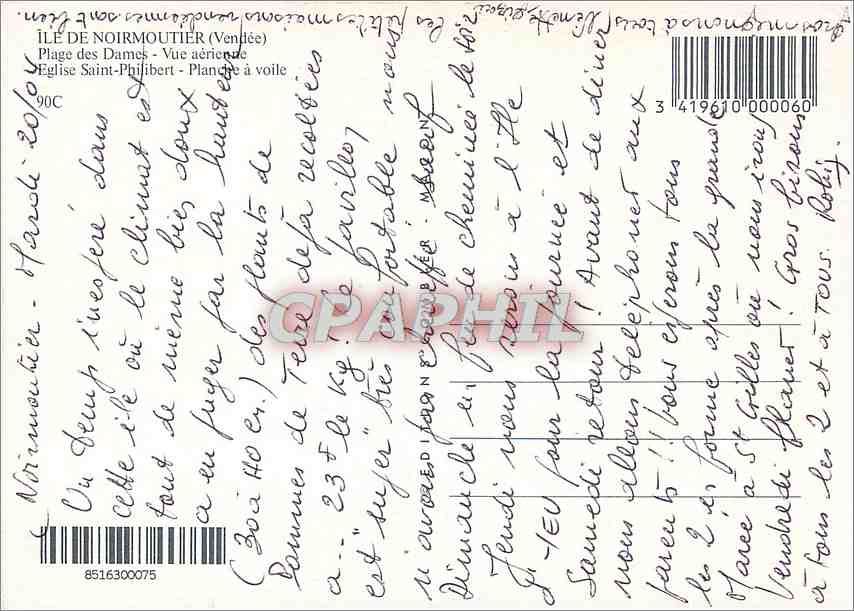 ÎLE DE NOIRMOUTIER (Vendée)
Plage des Dames - Vue aérienne
Eglise Saint-Philibert - Planche à voile
90C
3 419610 000060
8516300075
CPARHIL
Noirmoutier - Mardi 20/04
Un temps inespéré dans
cette île où le climat est
tout de même bien doux
a en juger par la hauteur
(30 à 40 cm) des plants de
Pommes de Terre déjà récoltées
a -- 23F le Kg! Le pavillon
est "super" très confortable, nous
n'avons pas chauffé sauf
Dimanche un feu de cheminée le soir
Jeudi nous serons à l'Ile
d'YEU pour la journée et
Samedi retour! Avant de dîner
nous allons téléphoner aux
parents!! Vous espérons tous
les 2 en forme après la grande
Marée à St Gilles où nous irons
Vendredi flâner! Gros bisous
à tous les 2 et à TOUS.
Gros mignons à tous
les petites maisons vendéennes sont bien.